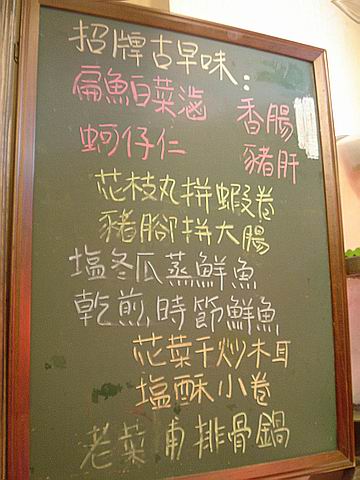 招牌古早味：
扁魚白菜滷
香腸
蚵仔仁
豬肝
花枝丸拼蝦卷
豬腳拼大腸
塩冬瓜蒸鮮魚
乾煎時節鮮魚
花菜干炒木耳
塩酥小卷
老菜甫排骨鍋